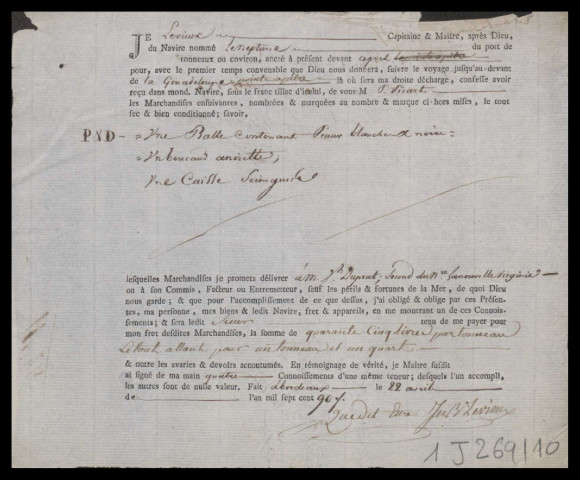 JE Levieux Capitaine & Maître, après Dieu,
du Navire nommé du port de
tonneaux ou environ, ancré à présent devant
pour, avec le premier temps convenable que Dieu nous donnera, suivre le voyage jusqu'au-devant
de la Gouadeloupe là où sera ma droite décharge, confesse avoir
reçu dans mond. Navire, sous le franc tillac d'icelui, de vous M
les Marchandises ensuivantes, nombrées & marquées au nombre & marque ci-hors mises, le tout
sec & bien conditionné; savoir,
PND = Une Balle contenant Peaux blanches & noire =
= Un boucaud
Une Caisse Seringues
lesquelles Marchandises je promets délivrer à M. Jh Duprat, Second du Nre
ou à son Commis, Facteur ou Entremetteur, sauf les périls & fortunes de la Mer, de quoi Dieu
nous garde; & que pour l'accomplissement de ce que dessus, j'ai obligé & oblige par ces Présentes,
ma personne, mes biens & ledit Navire, fret & apparils, en me montrant un de ces Connoissements;
& sera ledit Sieur tenu de me payer pour
mon fret desdites Marchandises, la somme de quarante Cinq livres par tonneau
Le tout allant pour un tonneau et un quart.
& outre les avaries & devoirs accoutumés. En témoignage de vérité, je Maître susdit
ai signé de ma main quatre Connoissements d'une même teneur; desquels l'un accompli,
les autres sont de nulle valeur. Fait à Bordeaux le 22 avril
de l'an mil sept cent 90/.
Que dit Etre Jn Bte Levieux
1 J 269/10